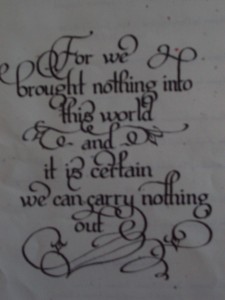 For we
brought nothing into
this world
and
it is certain
we can carry nothing
out